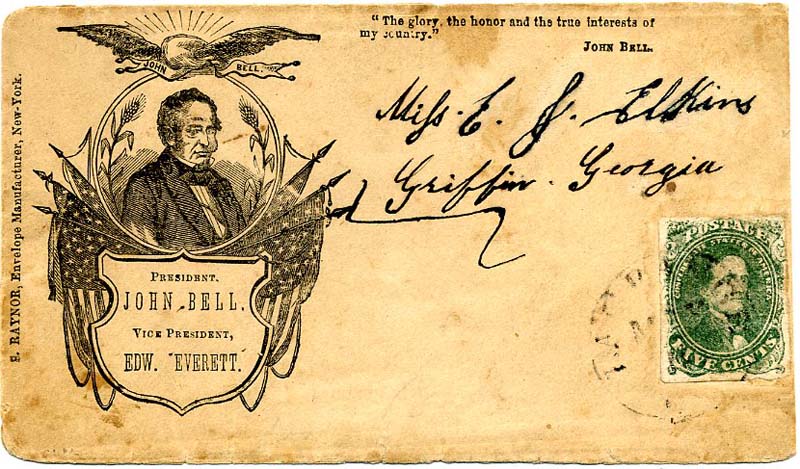 "The glory, the honor and the true interests of
my country."
JOHN BELL.
JOHN BELL.
S. RAYNOR, Envelope Manufacturer, New-York.
Miss. E. J. Elkins
Griffin. Georgia
PRESIDENT,
JOHN BELL.
VICE PRESIDENT,
EDW. EVERETT.
POSTAGE
CONFEDERATE STATES OF AMERICA
FIVE CENTS